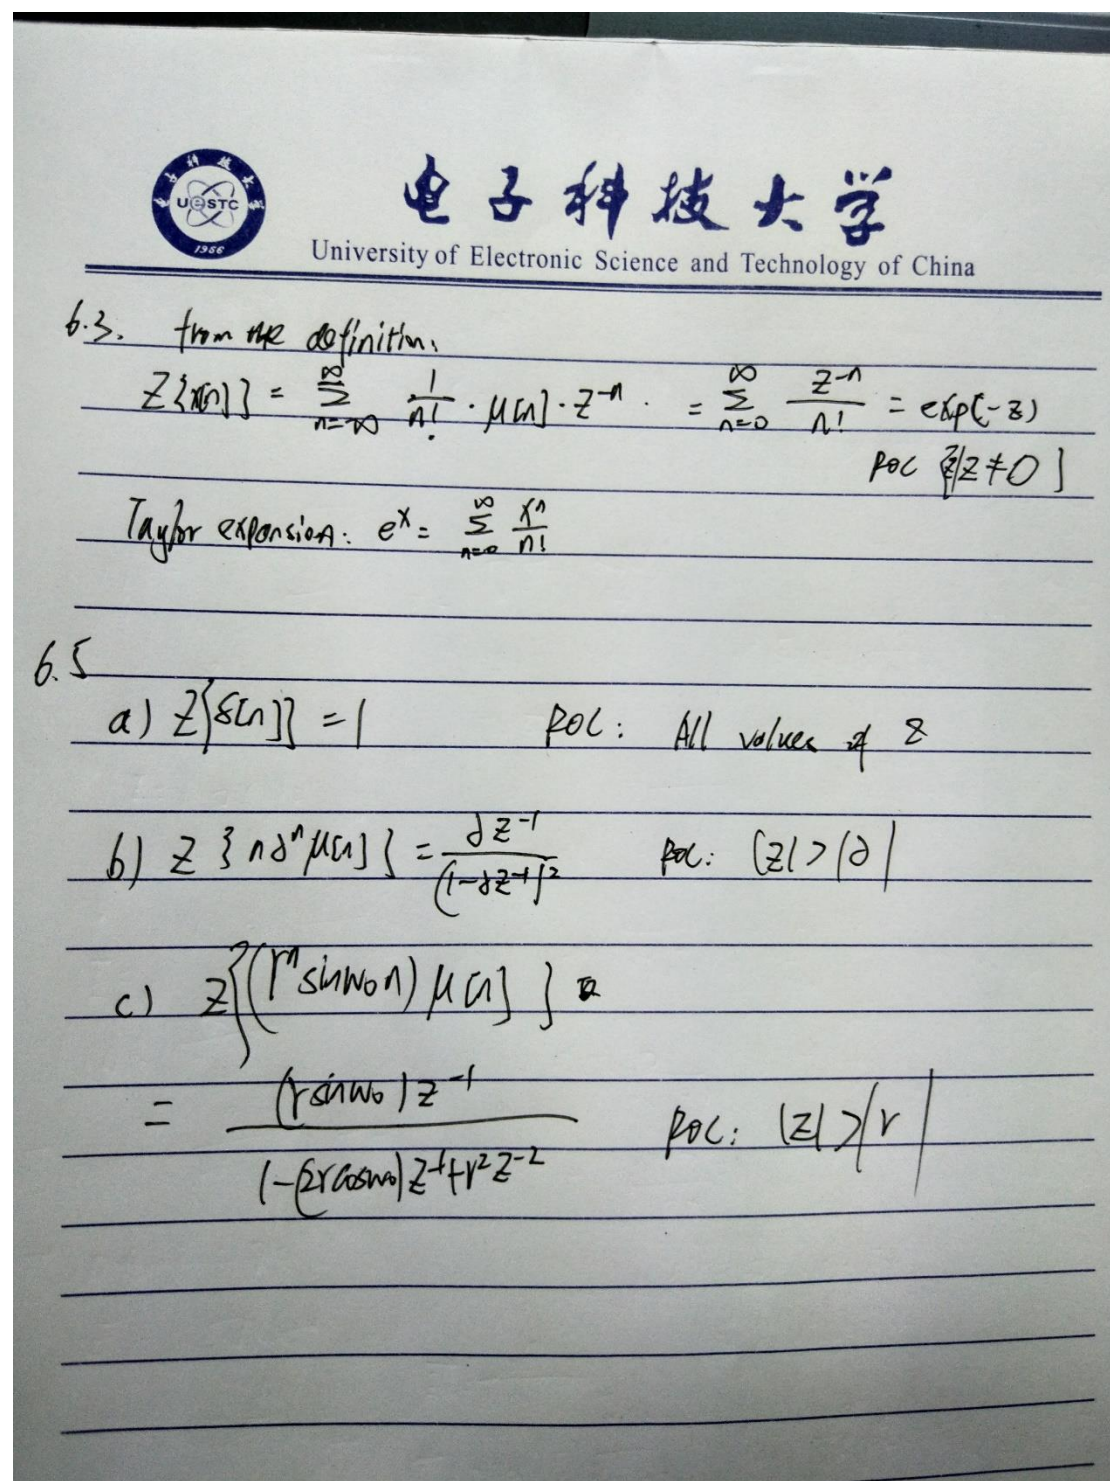 电子科技大学
UESTC
1956
University of Electronic Science and Technology of China
6.3. from the definition.
Z{x[n]} = ∞∑n=-∞ 1/n! · μ[n] · z^-n · = ∞∑n=0 z^-n/n! = exp(-z)
ROC {z|z≠0}
Taylor expansion: e^x = ∞∑n=0 x^n/n!
6.5
a) Z{δ[n]} = 1 ROC: All values of z
b) Z{n∂^n μ[n]} = ∂z^-1/(1-∂z^-1)^2 ROC: |z|>|∂|
c) Z{(r^n sinw₀n) μ[n]}
= (rsinw₀)z^-1/1-(2rcosw₀)z^-1+r^2z^-2 ROC: |z|>|r|